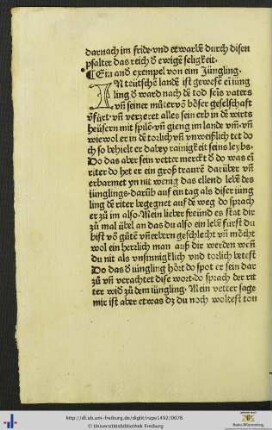 darnach im fride vnd erwarbe durch disen
psalter das reich gͦ ewigē seligkeit.
¶ Ein and̕ exempel von ein Jüngling.
IN teutschē landē ist gewesē ei iüng
ling gͦ ward nach dē tod seīs vaters
vn̄ seiner mūter vō böser geselschaft
v̕fürt· vn̄ verzeret alles sein erb in dē wirts
heüsern mit spilē· vn̄ gieng im lande vm̄· vn̄
wiewol er in dē torlich vn̄ vnweißlich tet do
ch so behielt er dabey rainigkeit seins leybs·
Do das aber sein vetter merckt
riter do het er ein groß trawrē darüber vn̄
erbarmet yn nit wenig das ellend lebē des
iünglings· darüb auf ein tag als diser iüng
ling dē riter begegnet auf dē weg· do sprach
er zū im also· Mein lieber freünd es stat dir
zū mal übel an das du also ein lebē fürst du
bist vō gūtē vn̄ edelem geschlecht vn̄ möcht
wol ein herzlich man auß dir werden wen̄
du nit als vnsinnigklich vnd torlich lebest
Do das gͦ iüngling hört do spot er sein dar
zū vn̄ verachtet dise wort· do sprach der rit
ter wid̕ zū dem iüngling. Mein vetter sage
mir ist aber etwas dz du noch woltest ton
http://dl.ub.uni-freiburg.de/diglit/rups1492/0076
© Universitätsbibliothek Freiburg